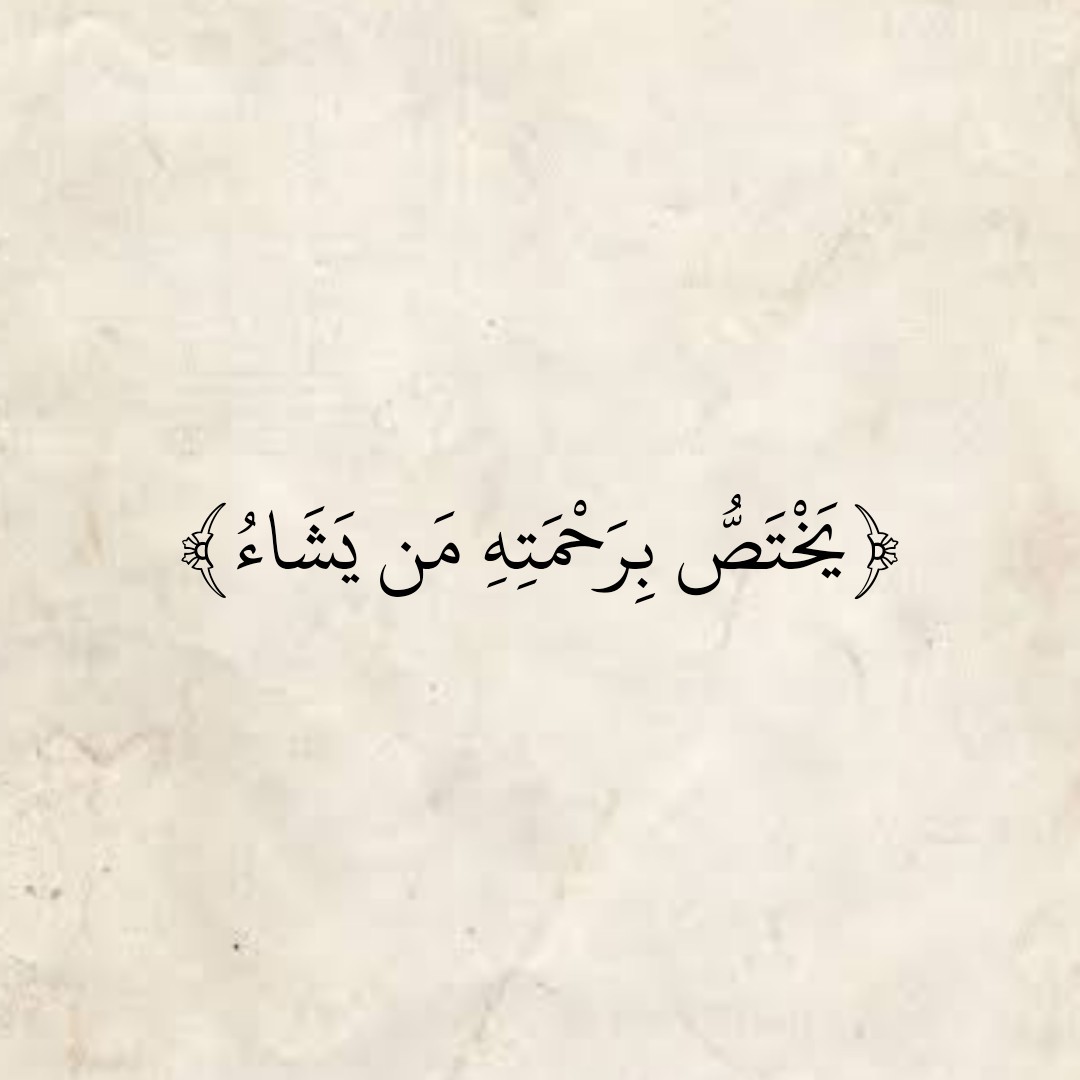 ﴿ يَخْتَصُّ بِرَحْمَتِهِ مَن يَشَاءُ ﴾